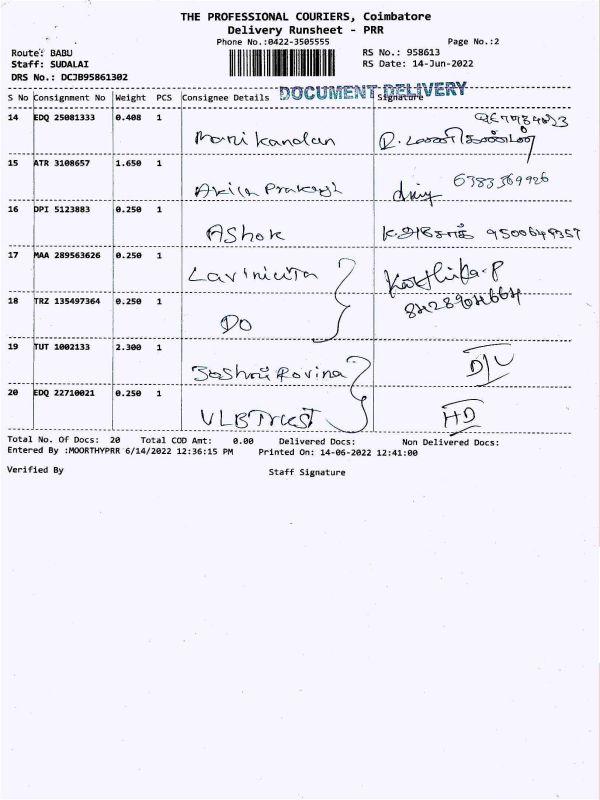 THE PROFESSIONAL COURIERS, Coimbatore
Delivery Runsheet - PRR
Phone No.:0422-3505555 Page No.:2
Route: BABU RS No.: 958613
Staff: SUDALAI RS Date: 14-Jun-2022
DRS No.: DCJB95861302
DOCUMENT DELIVERY
S No Consignment No Weight PCS Consignee Details Signature
14 EDQ 25081333 0.408 1
Manikandan R. மணிகண்டன்
15 ATR 3108657 1.650 1
Akila Prakash 6383369926
16 DPI 5123883 0.250 1
AShok K.அசோக் 9500649357
17 MAA 289563626 0.250 1
Karthika.P
18 TRZ 135497364 0.250 1 8428904664
DO
19 TUT 1002133 2.300 1
Rovina D/L
20 EDQ 22710021 0.250 1
VLB Trust HD
Total No. Of Docs: 20 Total COD Amt: 0.00 Delivered Docs: Non Delivered Docs:
Entered By :MOORTHYPRR 6/14/2022 12:36:15 PM Printed On: 14-06-2022 12:41:00
Verified By Staff Signature